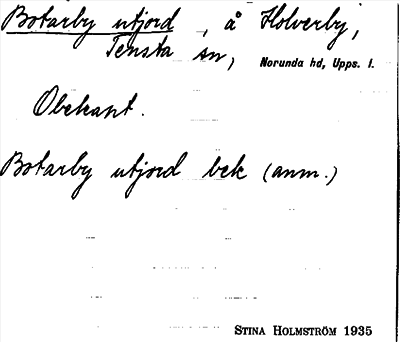 Botarby utjord, å Holverby,
Tensta sn, Norunda hd, Upps. l.
Obekant.
Botarby utjord bek (anm.)
STINA HOLMSTRÖM 1935